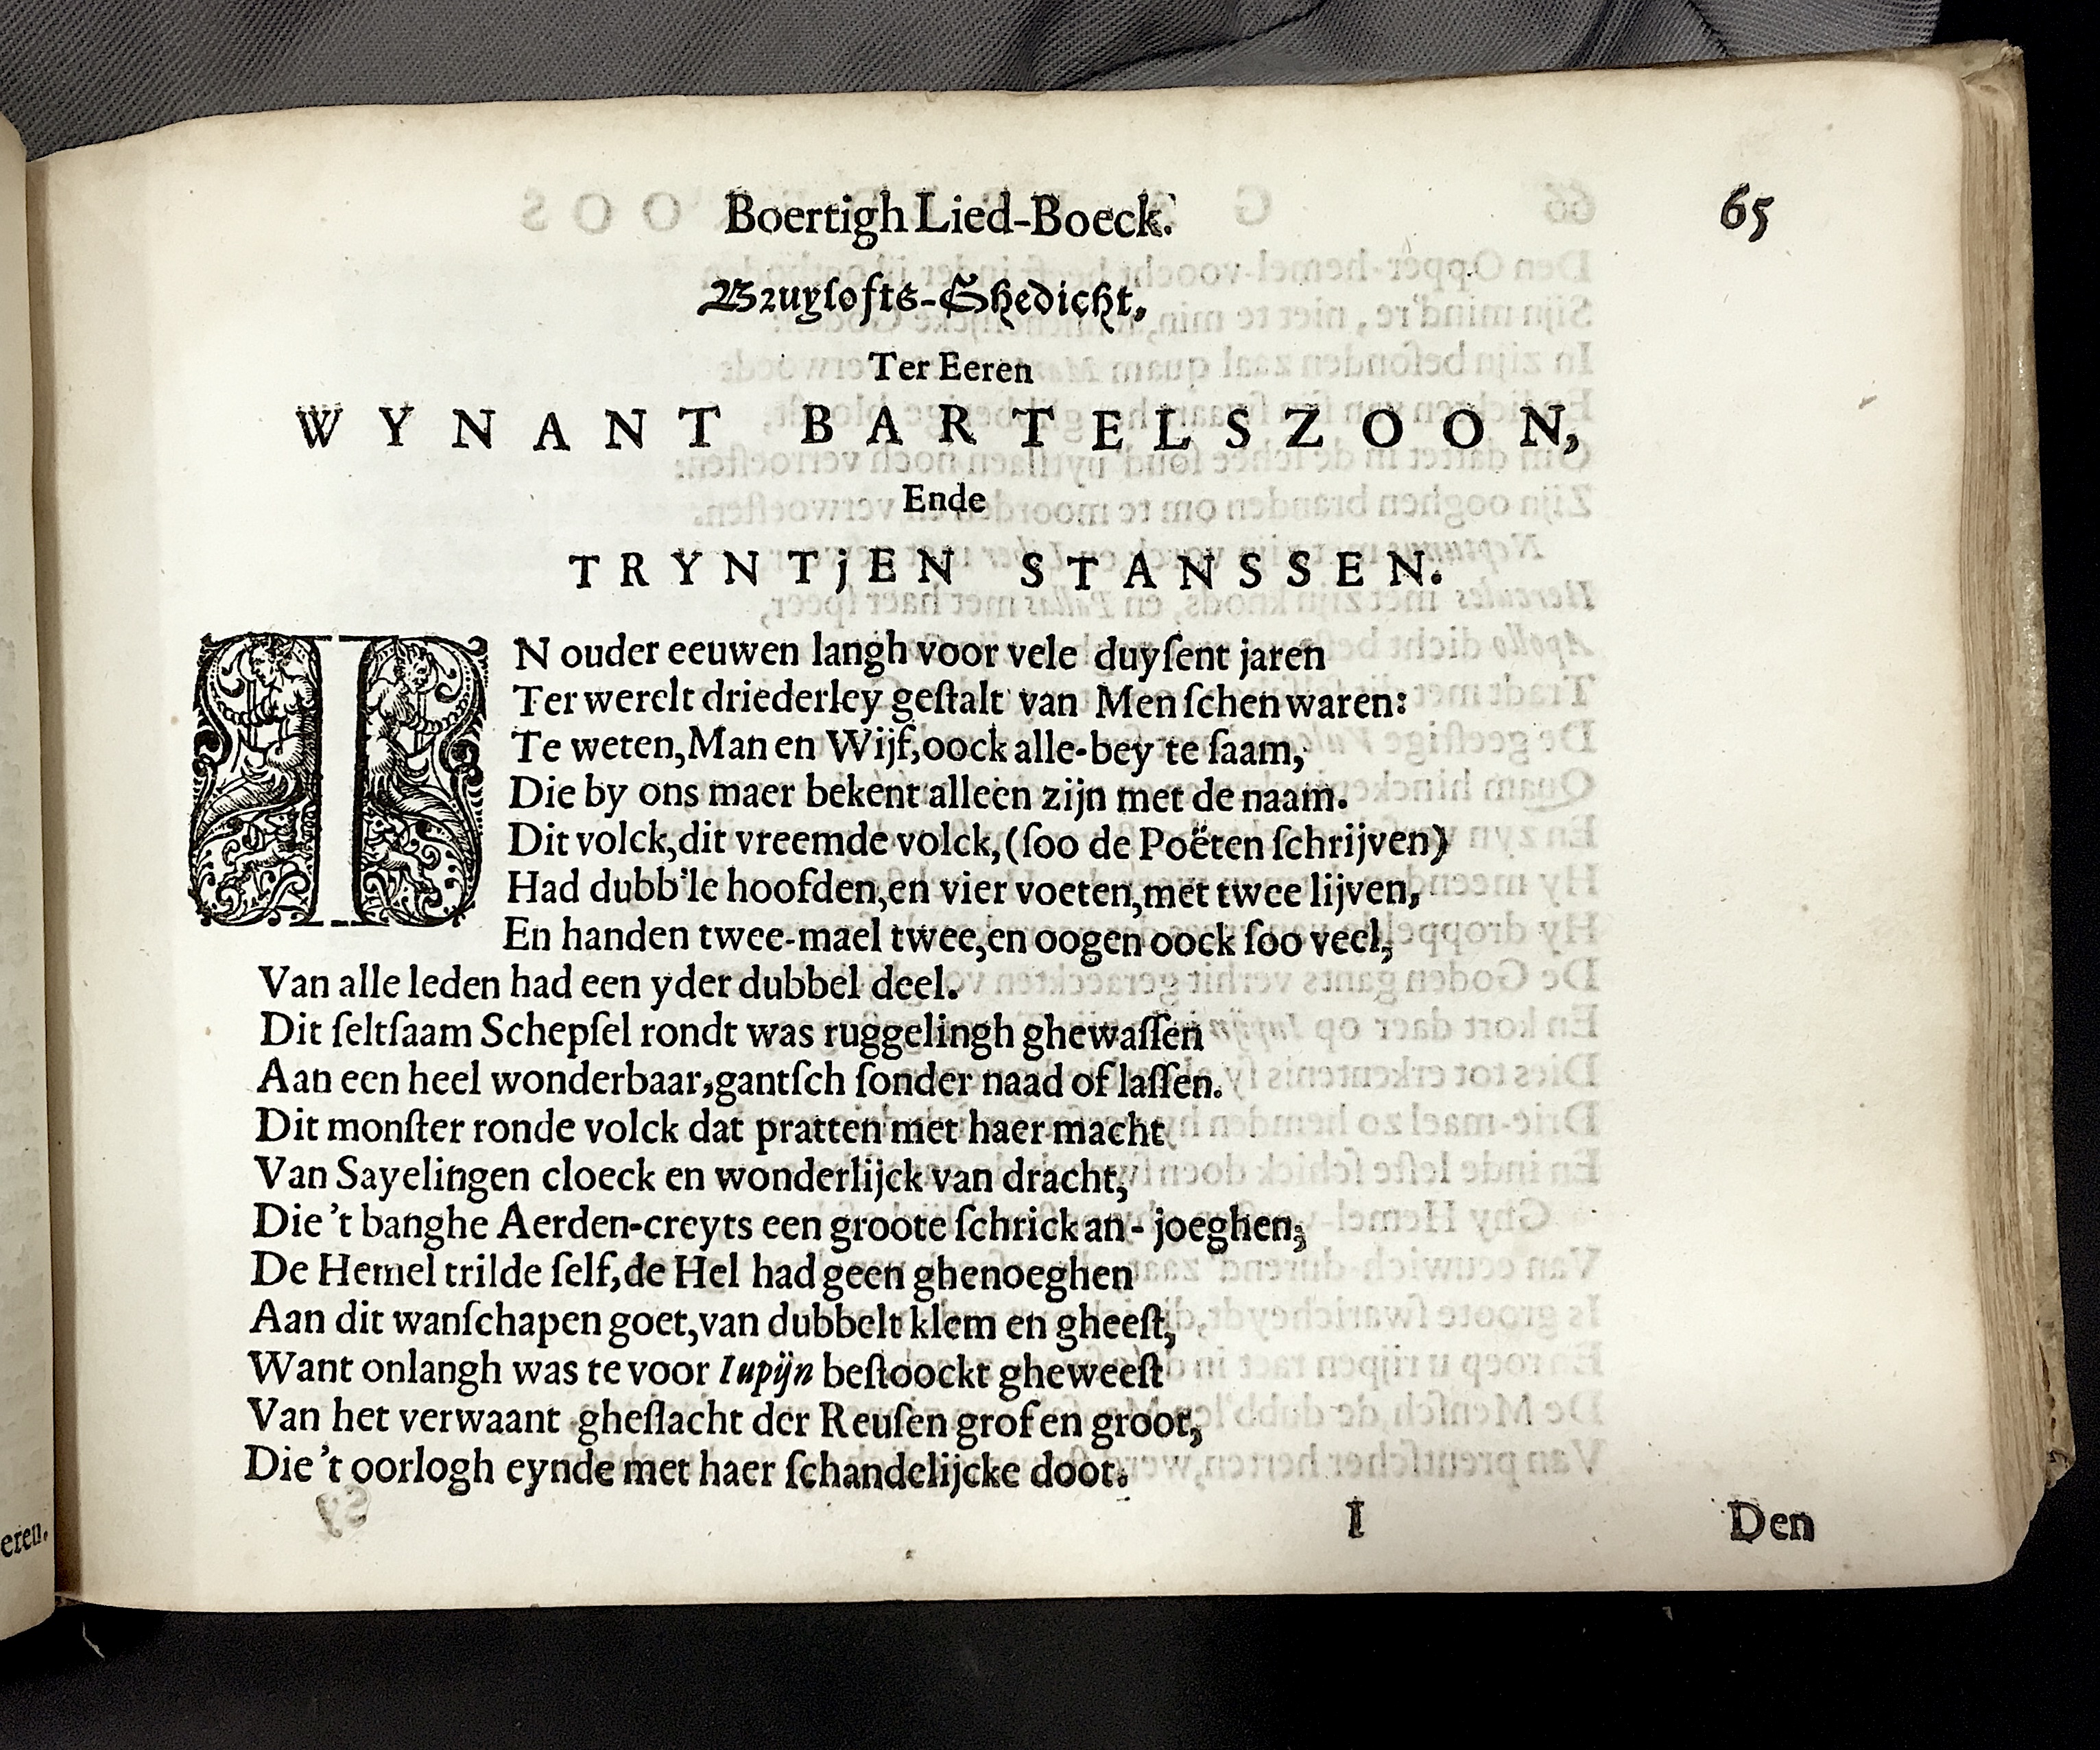 Boertigh Lied-Boeck. 65
Bruylofts-Ghedicht,
Ter Eeren
WYNANT BARTELSZOON,
Ende
TRYNTjEN STANSSEN.
IN ouder eeuwen langh voor vele duyſent jaren
Ter werelt driederley geſtalt van Men ſchen waren:
Te weten, Man en Wijf, oock alle-bey te ſaam,
Die by ons maer bekent alleen zijn met de naam.
Dit volck, dit vreemde volck, (ſoo de Poëten ſchrijven)
Had dubb'le hoofden, en vier voeten, met twee lijven,
En handen twee-mael twee, en oogen oock ſoo veel,
Van alle leden had een yder dubbel deel.
Dit ſeltſaam Schepſel rondt was ruggelingh ghewaſſen
Aan een heel wonderbaar, gantſch ſonder naad of laſſen.
Dit monſter ronde volck dat pratten met haer macht
Van Sayelingen cloeck en wonderlijck van dracht,
Die 't banghe Aerden-creyts een groote ſchrick an-joeghen;
De Hemel trilde ſelf, de Hel had geen ghenoeghen
Aan dit wanſchapen goet, van dubbelt klem en gheeſt,
Want onlangh was te voor Iupijn beſtoockt gheweeſt
Van het verwaant gheſlacht der Reuſen grof en groot,
Die 't oorlogh eynde met haer ſchandelijcke doot.
I Den
eren.